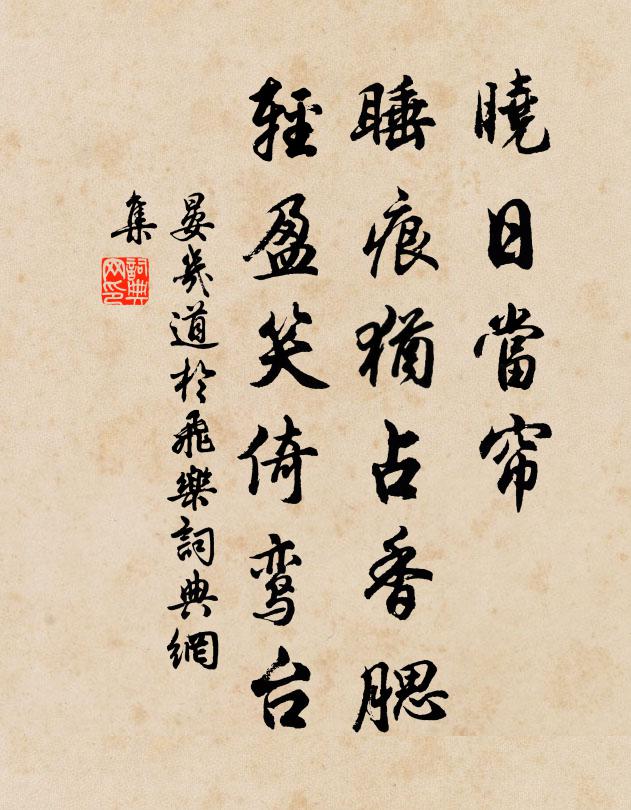 曉日當帘
睡痕猶占香腮
輕盈笑倚鸾台
晏幾道於飛樂詞典網
集
詞典
网印